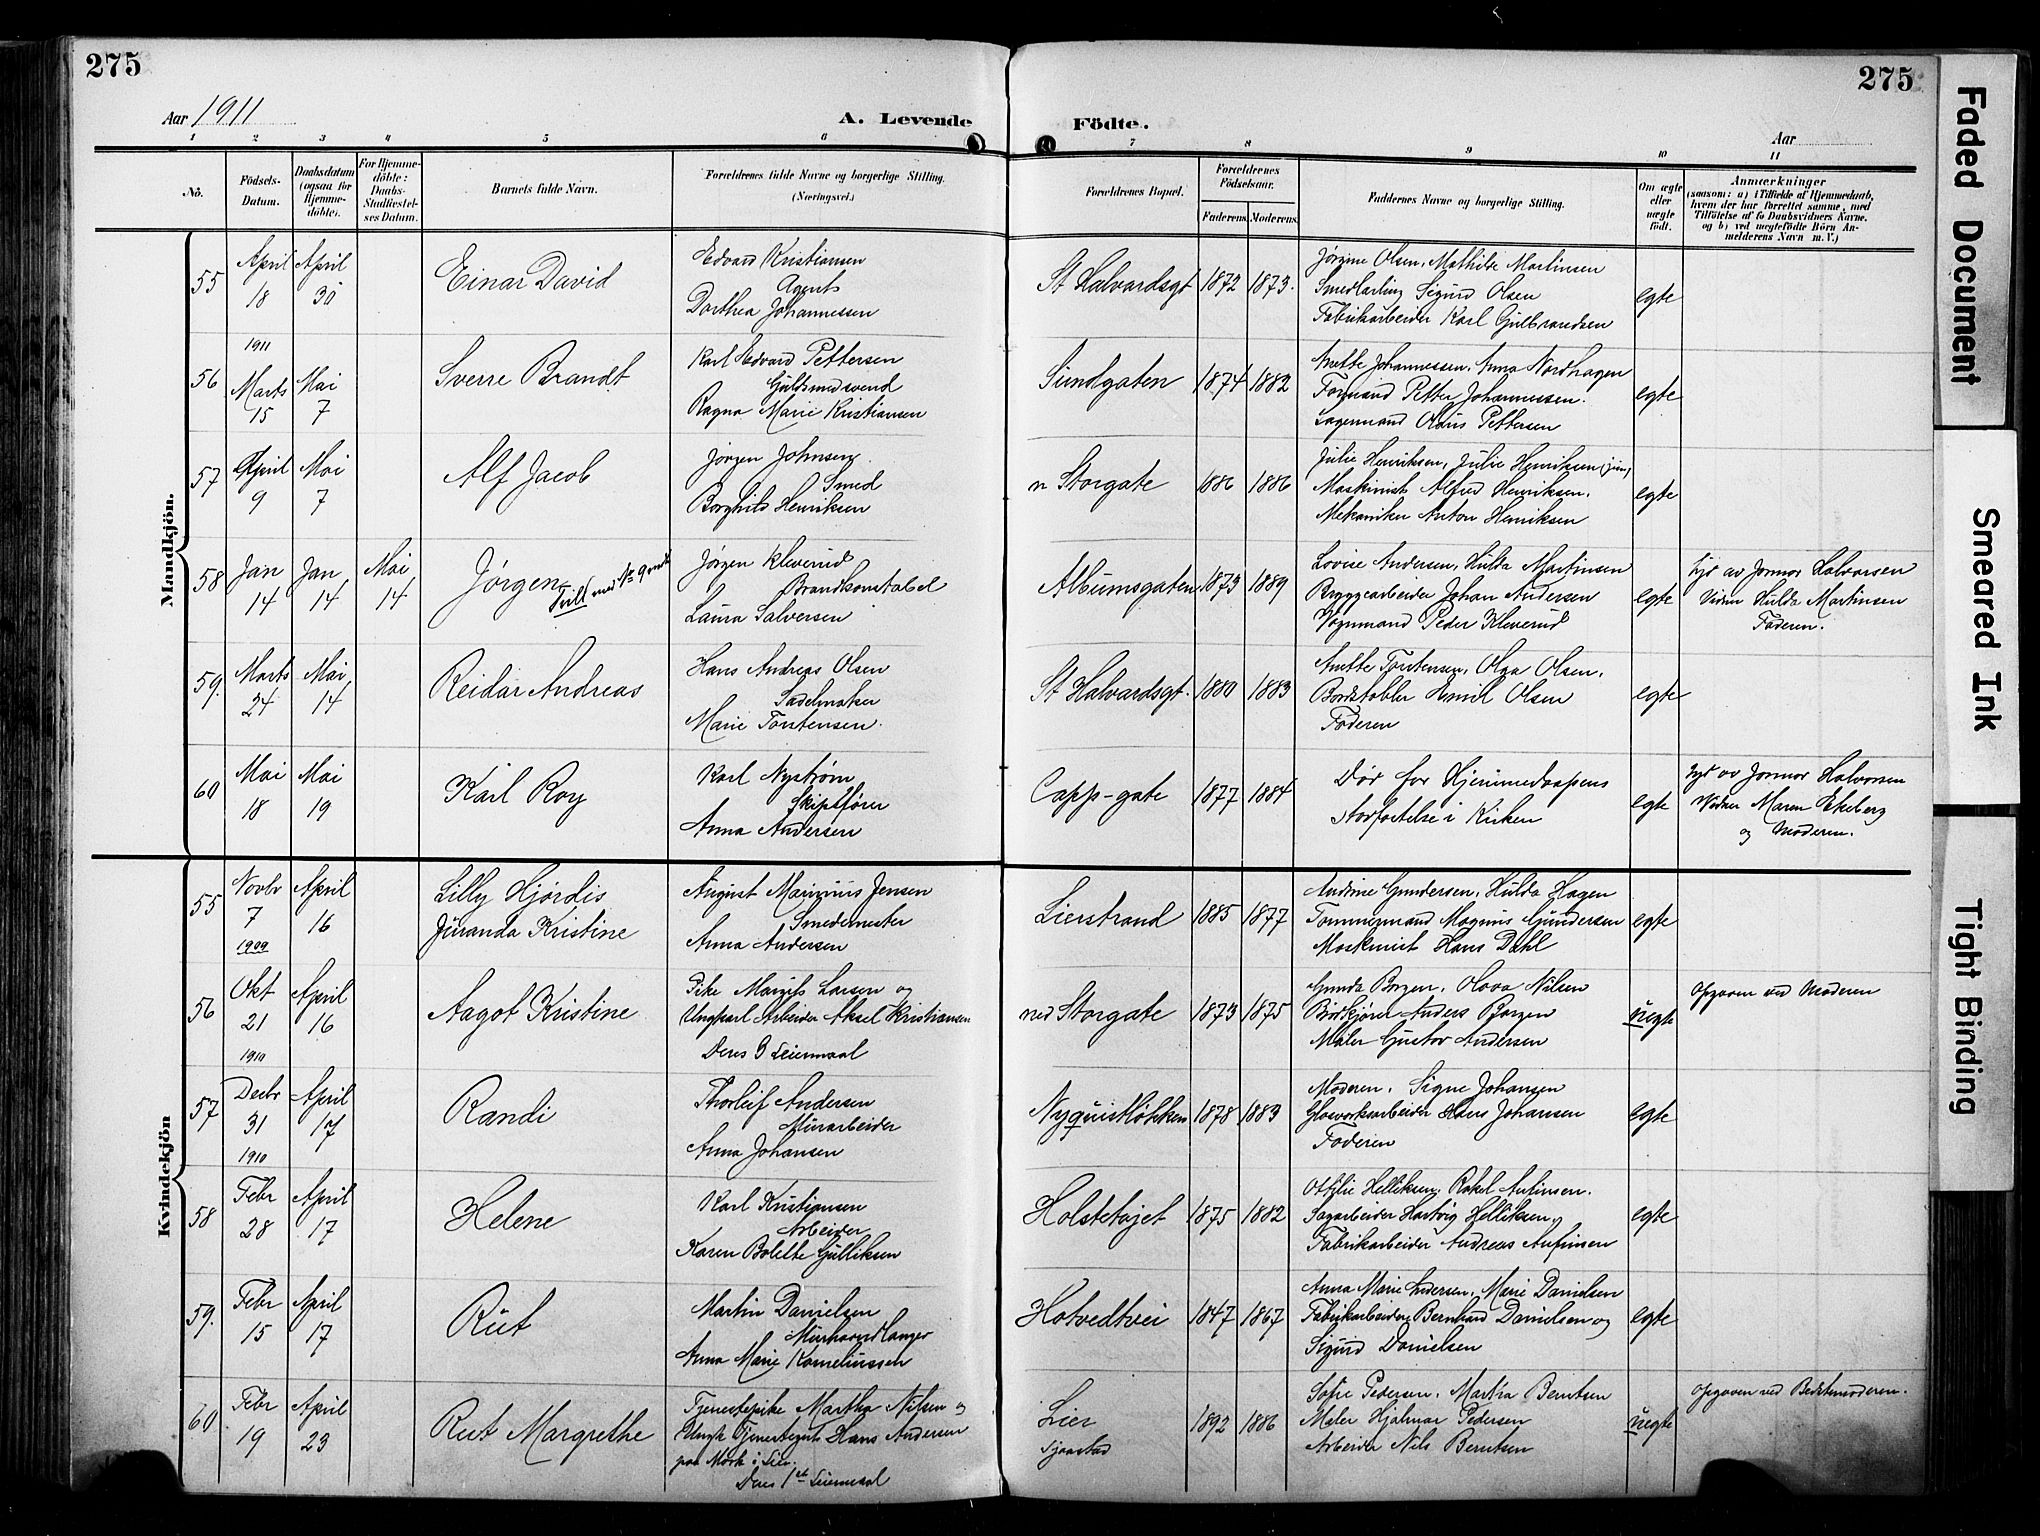 275
275
Aar 1911
A. Levende
Födte.
Aar
1 2 3 4 5 6 7 8 9 10 11
No.
Födsels-Datum.
Daabsdatum (ogsaa for Hjemme-döbte).
For Hjemme-döbte: Daabs-Stadfæstel-ses Datum.
Barnets fulde Navn.
Forældrenes fulde Navne og borgerlige Stilling.
(Næringsvei.)
Forældrenes Bopæl.
Forældrenes Födselsaar.
Faderens. Moderens.
Faddernes Navne og borgerlige Stilling.
Om ægte eller uægte født.
Anmærkninger
(saasom: a) i Tilfælde af Hjemmedaab,
hvem der har forrettet samme, med
Tilföielse af to Daabsvidners Navne.
og b) ved uægtefödte Börn An-
melderens Navn m. V.)
Mandkjön.
55 April 18 April 30 Einar David
Edvard Kristiansen
Agent
Dorthea Johannessen
St Halvardsgt 1872 1873.
Jørgine Olsen, Mathilde Martinsen
Smedlærling Sigurd Olsen
Fabrikarbeider Karl Gulbrandsen
egte
1911
56 Marts 15 Mai 7 Sverre Brandt
Karl Edvard Pettersen
Guldsmedsvend
Ragna Marie Kristiansen
Sundgaten 1874 1882
Anette Johannessen, Anna Nordhagen
Formand Petter Johannessen.
Lagermand Olaus Pettersen
egte
57 April 9 Mai 7 Alf Jacob
Jørgen Johnsen
Smed
Borghild Henriksen
n Storgate 1886 1886
Julie Henriksen, Julie Henriksen jun,
Maskinist Alfred Henriksen,
Mekaniker Anton Henriksen
egte
58 Jan 14 Jan 14 Mai 14 Jørgen
Tvill med No 9
Jørgen Kleverud
Brandkonstabel
Laura Halversen
Albumsgaten 1873 1889
Lovise Andersen, Hulda Martinsen
Bryggearbeider Johan Andersen
Vognmand Peder Kleverud
egte
Hjd av Jormor Halvorsen
Vidner Hulda Martinsen
Faderen.
59. Marts 24 Mai 14 Reidar Andreas
Hans Andreas Olsen
Sadelmaker
Marie Torstensen.
St Halvardsgt. 1880 1883
Anette Torstensen, Olga Olsen,
Bordstabler Emil Olsen
Faderen
egte
60 Mai 18 Mai 19 Karl Roy
Karl Nystrøm
Skipsfører
Anna Andersen
Capp-gate 1877 1884
Død før Hjemmedaapens
stadfæstelse i Kirken
egte
Hjd av Jormor Halvorsen
Vidner Maren Ekeberg
og Moderen.
Kvindekjön
55 Novbr 7 1909 April 16
Lilly Hjørdis
Juranda Kristine
August Marinius Jensen
Smedemester
Anna Andersen
Lierstrand 1885 1877
Andrine Gundersen, Hulda Hagen
Tømmermand Magnus Gundersen
Maskinist Hans Dahl
egte
56 Okt 21 1910 April 16 Aagot Kristine
Pike Margit Larsen og
Ungkarl Arbeider Aksel Kristiansen
Deres 3 Leiermaal
ned Storgate 1873 1875
Gunda Borgen, Olava Nilsen
Anders Borgen
Maler Gustav Andersen
uegte
Opgaven ved Moderen
57 Decbr 31 1910 April 17 Randi
Thorleif Andersen
Murarbeider
Anna Johansen
Nyquistløkken 1878 1883
Moderen, Signe Johansen
Glasverksarbeider Hans Johansen
Faderen
egte
58 Febr 28 April 17 Helene
Karl Kristiansen
Arbeider
Karen Bolette Gulliksen
Holstetøjet 1875 1882
Ottilie Helliksen, Rakel Anfinsen.
Sagarbeider Hartvig Helliksen,
Fabrikarbeider Andreas Anfinsen
egte
59. Febr 15 April 17 Rut
Martin Danielsen
Murhaandlanger
Anna Marie Korneliussen
Hotvedtvei 1847 1867
Anna Marie Andersen, Marie Danielsen
Fabrikarbeidere Bernhard Danielsen og
Sigurd Danielsen
egte
60 Febr 19 April 23 Rut Margrethe
Tjenestepike Martha Nilsen og
Ungk Tjenestegut Hans Andersen
paa Mørk i Lier.
Deres 1st Leiermaal
Lier 1892 1886
Sjaastad
Sofie Pedersen, Martra Berntsen
Maler Hjalmar Pedersen
Arbeider Nils Berntsen
uegte
Opgaven ved Bedstemoderen.
Faded Document
Smeared Ink
Tight Binding